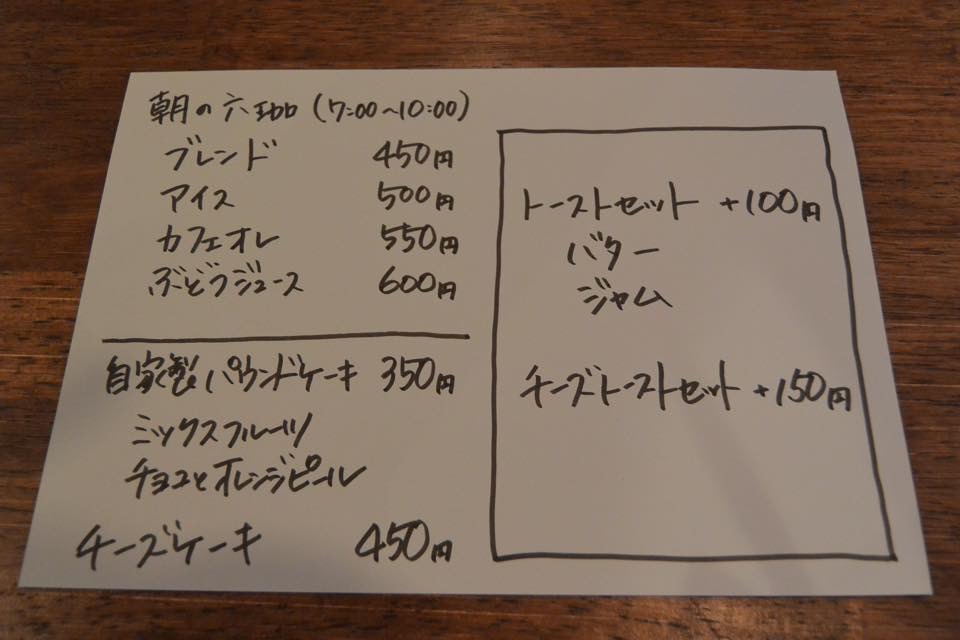 朝の六珈 (7:00～10:00)
ブレンド 450円
アイス 500円
カフェオレ 550円
ぶどうジュース 600円
自家製パウンドケーキ 350円
ミックスフルーツ
チョコとオレンジピール
チーズケーキ 450円
トーストセット +100円
バター
ジャム
チーズトーストセット +150円